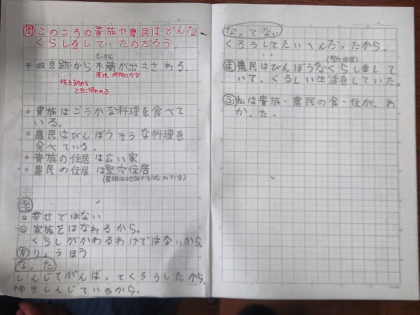 問 このころの貴族や農民はどんな
くらしをしていたのだろう
平城京跡から木簡が出土される
もっかん
・貴族はごうかな料理を食べて
いる。
・農民はびんぼうそうな料理を
食べている。
・貴族の住居は広い家
・農民の住居は竪穴住居
考
・幸せではない
家族をはなれるから。
くらしがかわるわけではないから
りょうほう
なった
しんじてがんばってくろうしたから
神をしんじているから。
なってない
くろうしてたいへんだったから。
ま 農民はびんぼうなくらしをして
いて、くるしい生活をしていた。
ふ 私は貴族・農民の食・住が、わ
かった。